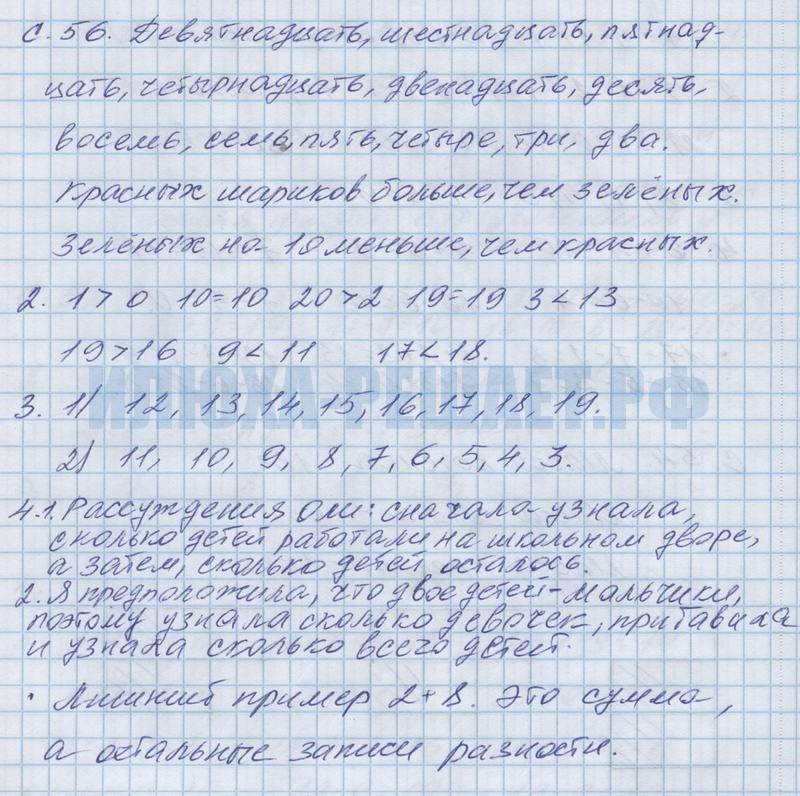 с. 56. Девятнадцать, шестнадцать, пятнад-
цать, четырнадцать, двенадцать, десять,
восемь, семь, пять, четыре, три, два.
Красных шариков больше, чем зелёных.
Зелёных на 10 меньше, чем красных.
2. 1 > 0 10 = 10 20 > 2 19 = 19 3 < 13
19 > 16 9 < 11 17 < 18.
ИЛЮХА-РЕШАЕТ.РФ
3. 1) 12, 13, 14, 15, 16, 17, 18, 19.
2) 11, 10, 9, 8, 7, 6, 5, 4, 3.
4.1. Рассуждения Оли: сначала узнала,
сколько детей работали на школьном дворе,
а затем, сколько детей осталось.
2. Я предположила, что двое детей - мальчики,
поэтому узнала сколько девочек, прибавила
и узнала сколько всего детей.
· Лишний пример 2 + 8. Это сумма,
а остальные записи разности.